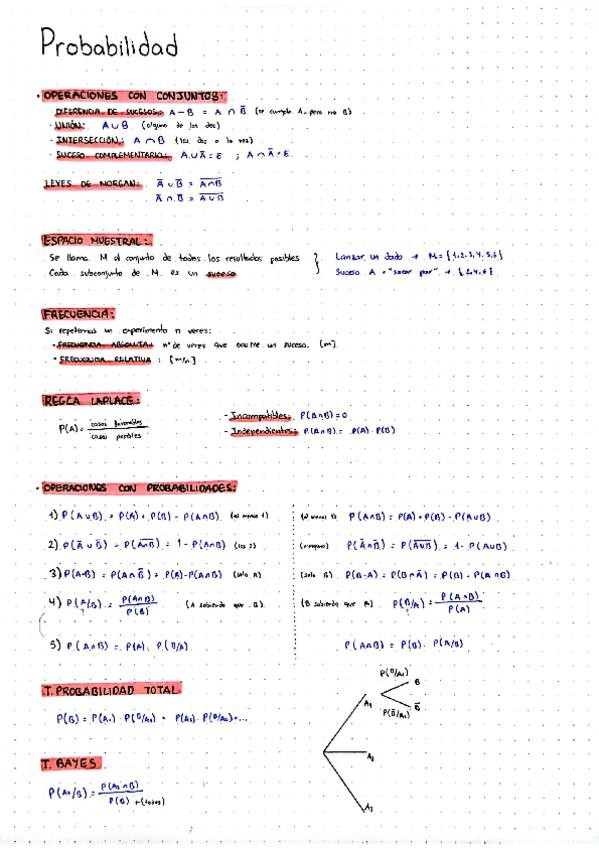 Probabilidad
· OPERACIONES CON CONJUNTOS:
· DIFERENCIA DE SUCESOS: A − B = A ∩ B̅ (se cumple A, pero no B)
· UNIÓN: A ∪ B (alguno de los dos)
· INTERSECCIÓN: A ∩ B (los dos a la vez)
· SUCESO COMPLEMENTARIO: A ∪ A̅ = E ; A ∩ A̅ = E
LEYES DE MORGAN: A̅ ∪ B̅ = \overline{A ∩ B}
A̅ ∩ B̅ = \overline{A ∪ B}
ESPACIO MUESTRAL:
Se llama M al conjunto de todos los resultados posibles } Lanzar un dado → M = {1,2,3,4,5,6}
Cada subconjunto de M es un suceso Suceso A = "sacar par" → {2,4,6}
FRECUENCIA:
Si repetimos un experimento n veces:
· FRECUENCIA ABSOLUTA: nº de veces que ocurre un suceso. [m]
· FRECUENCIA RELATIVA: [m/n]
REGLA LAPLACE:
P(A) = casos favorables / casos posibles
- Incompatibles: P(A∩B) = 0
- Independientes: P(A∩B) = P(A) · P(B)
· OPERACIONES CON PROBABILIDADES:
1) P(A∪B) = P(A) + P(B) − P(A∩B) (al menos 1) (al menos 1) P(A∩B) = P(A) + P(B) − P(A∪B)
2) P(A̅ ∪ B̅) = P(\overline{A∩B}) = 1 − P(A∩B) (ninguno) P(A̅ ∩ B̅) = P(\overline{A∪B}) = 1 − P(A∪B)
3) P(A−B) = P(A∩B̅) = P(A) − P(A∩B) (solo A) (solo B) P(B−A) = P(B∩A̅) = P(B) − P(A∩B)
4) P(A/B) = P(A∩B) / P(B) (A sabiendo que B) (B sabiendo que A) P(B/A) = P(A∩B) / P(A)
5) P(A∩B) = P(A) · P(B/A) P(A∩B) = P(B) · P(A/B)
T. PROBABILIDAD TOTAL
P(B) = P(A₁) · P(B/A₁) + P(A₂) · P(B/A₂) + ...
P(B/A₁) B
A₁
P(B̅/A₁) B̅
A₂
A₃
T. BAYES
P(A₃/B) = P(A₃∩B) / P(B) ←(total)